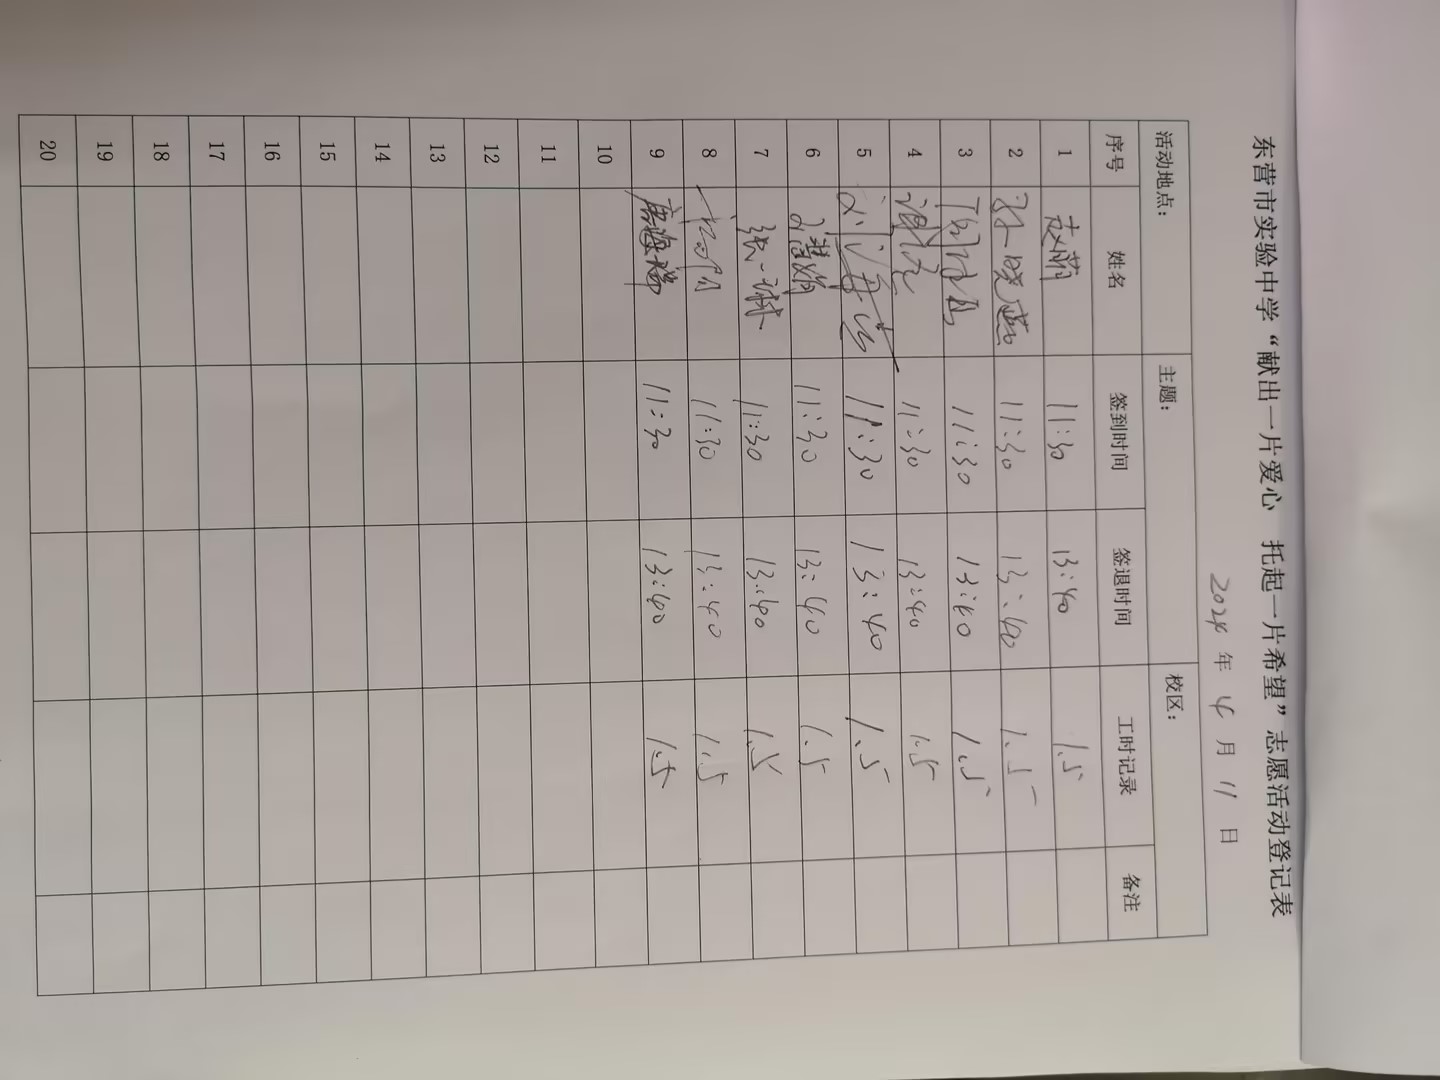 东营市实验中学“献出一片爱心 托起一片希望”志愿活动登记表
2024 年 4 月 11 日
活动地点: 主题: 校区:
序号 姓名 签到时间 签退时间 工时记录 备注
1 赵萌 11:30 13:40 1.5
2 孙晓燕 11:30 13:40 1.5
3 11:30 13:40 1.5
4 11:30 13:40 1.5
5 11:30 13:40 1.5
6 11:30 13:40 1.5
7 张一琳 11:30 13:40 1.5
8 11:30 13:40 1.5
9 唐海瑞 11:30 13:40 1.5
10
11
12
13
14
15
16
17
18
19
20